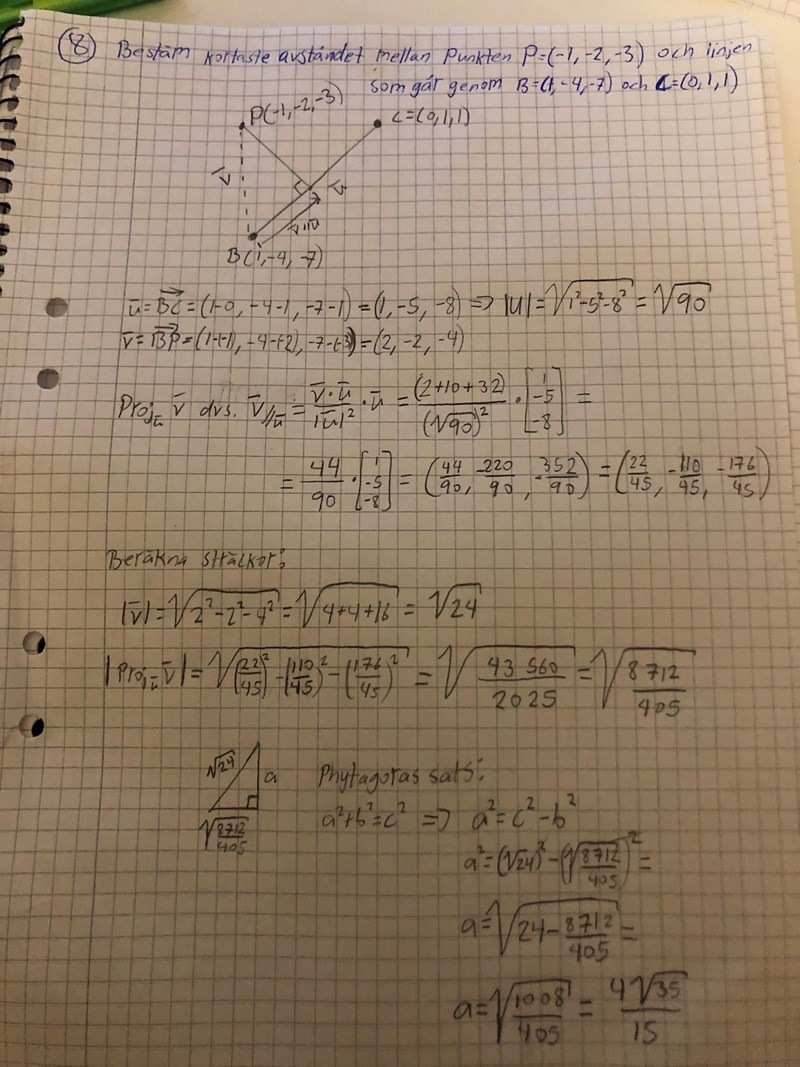 ⑧ Bestäm kortaste avståndet mellan Punkten P=(-1, -2, -3) och linjen
som går genom B=(1, -4, -7) och C=(0, 1, 1)
P(-1, -2, -3)
C=(0, 1, 1)
v̄
ū
v̄//ū
B(1, -4, -7)
ū = BC→ = (1-0, -4-1, -7-1) = (1, -5, -8) => |u| = √(1²-5²-8²) = √90
v̄ = BP→ = (1-(-1), -4-(-2), -7-(-3)) = (2, -2, -4)
Proj_ū v̄ dvs. v̄//ū = (v̄·ū)/|ū|² · ū = (2+10+32)/(√90)² · [1 -5 -8] =
= 44/90 · [1 -5 -8] = (44/90, -220/90, -352/90) = (22/45, -110/45, -176/45)
Beräkna sträckor:
|v̄| = √(2²-2²-4²) = √(4+4+16) = √24
|Proj_ū v̄| = √((22/45)² - (110/45)² - (176/45)²) = √(43 560/2025) = √(8712/405)
√24
a
√(8712/405)
Phytagoras sats:
a²+b²=c² => a²=c²-b²
a² = (√24)² - (√(8712/405))² =
a = √(24 - 8712/405) =
a = √(1008/405) = 4√35/15